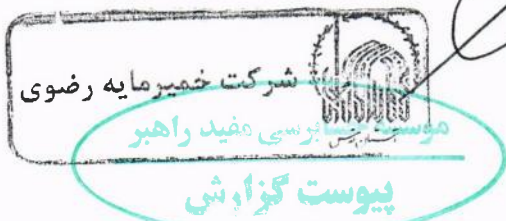 شرکت خمیرمایه رضوی
موسسه حسابرسی مفید راهبر
پیوست گزارش